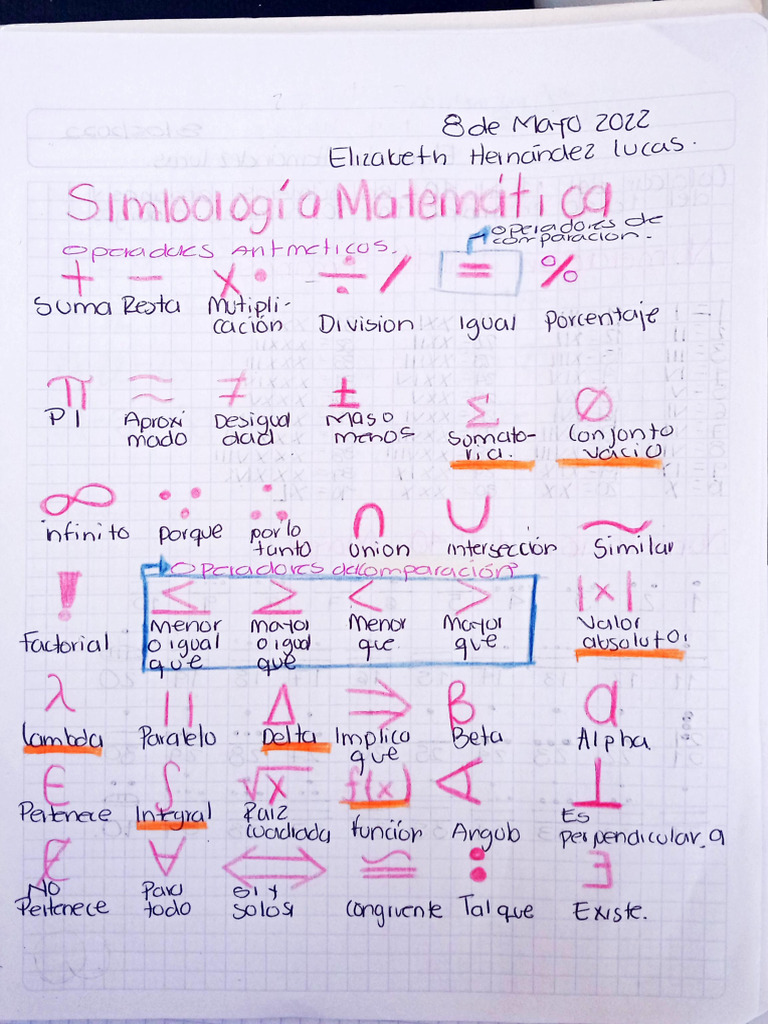 8 de Mayo 2022
Elizabeth Hernández Lucas.
Simbología Matemática
Operadores Aritmeticos.
operadores de
comparación.
+ − × • ÷ / = %
Suma Resta Mutipli-
cación División igual porcentaje
π ≈ ≠ ± Σ ∅
PI Aproxi
mado Desigual
dad. Mas o
menos Sumato-
ria. Conjonto
vacio
∞ ∵ ∴ ∩ ∪ ~
infinito porque por lo
tanto union intersección Similar
Operadores de comparación
! ≤ ≥ < > |x|
factorial Menor
o igual
que mayor
o igual
que Menor
que. Mayor
que. Valor
absoluto.
λ || Δ ⇒ β α
Lambda Paralelo Delta Implica
que Beta Alpha
∈ ∫ √x f(x) ∢ ⊥
Pertenece Integral Raiz
cuadrada función Angulo Es
perpendicular a
∉ ∀ ⇔ ≅ : ∃
No
Pertenece Para
todo si y
solo si congruente Tal que Existe.